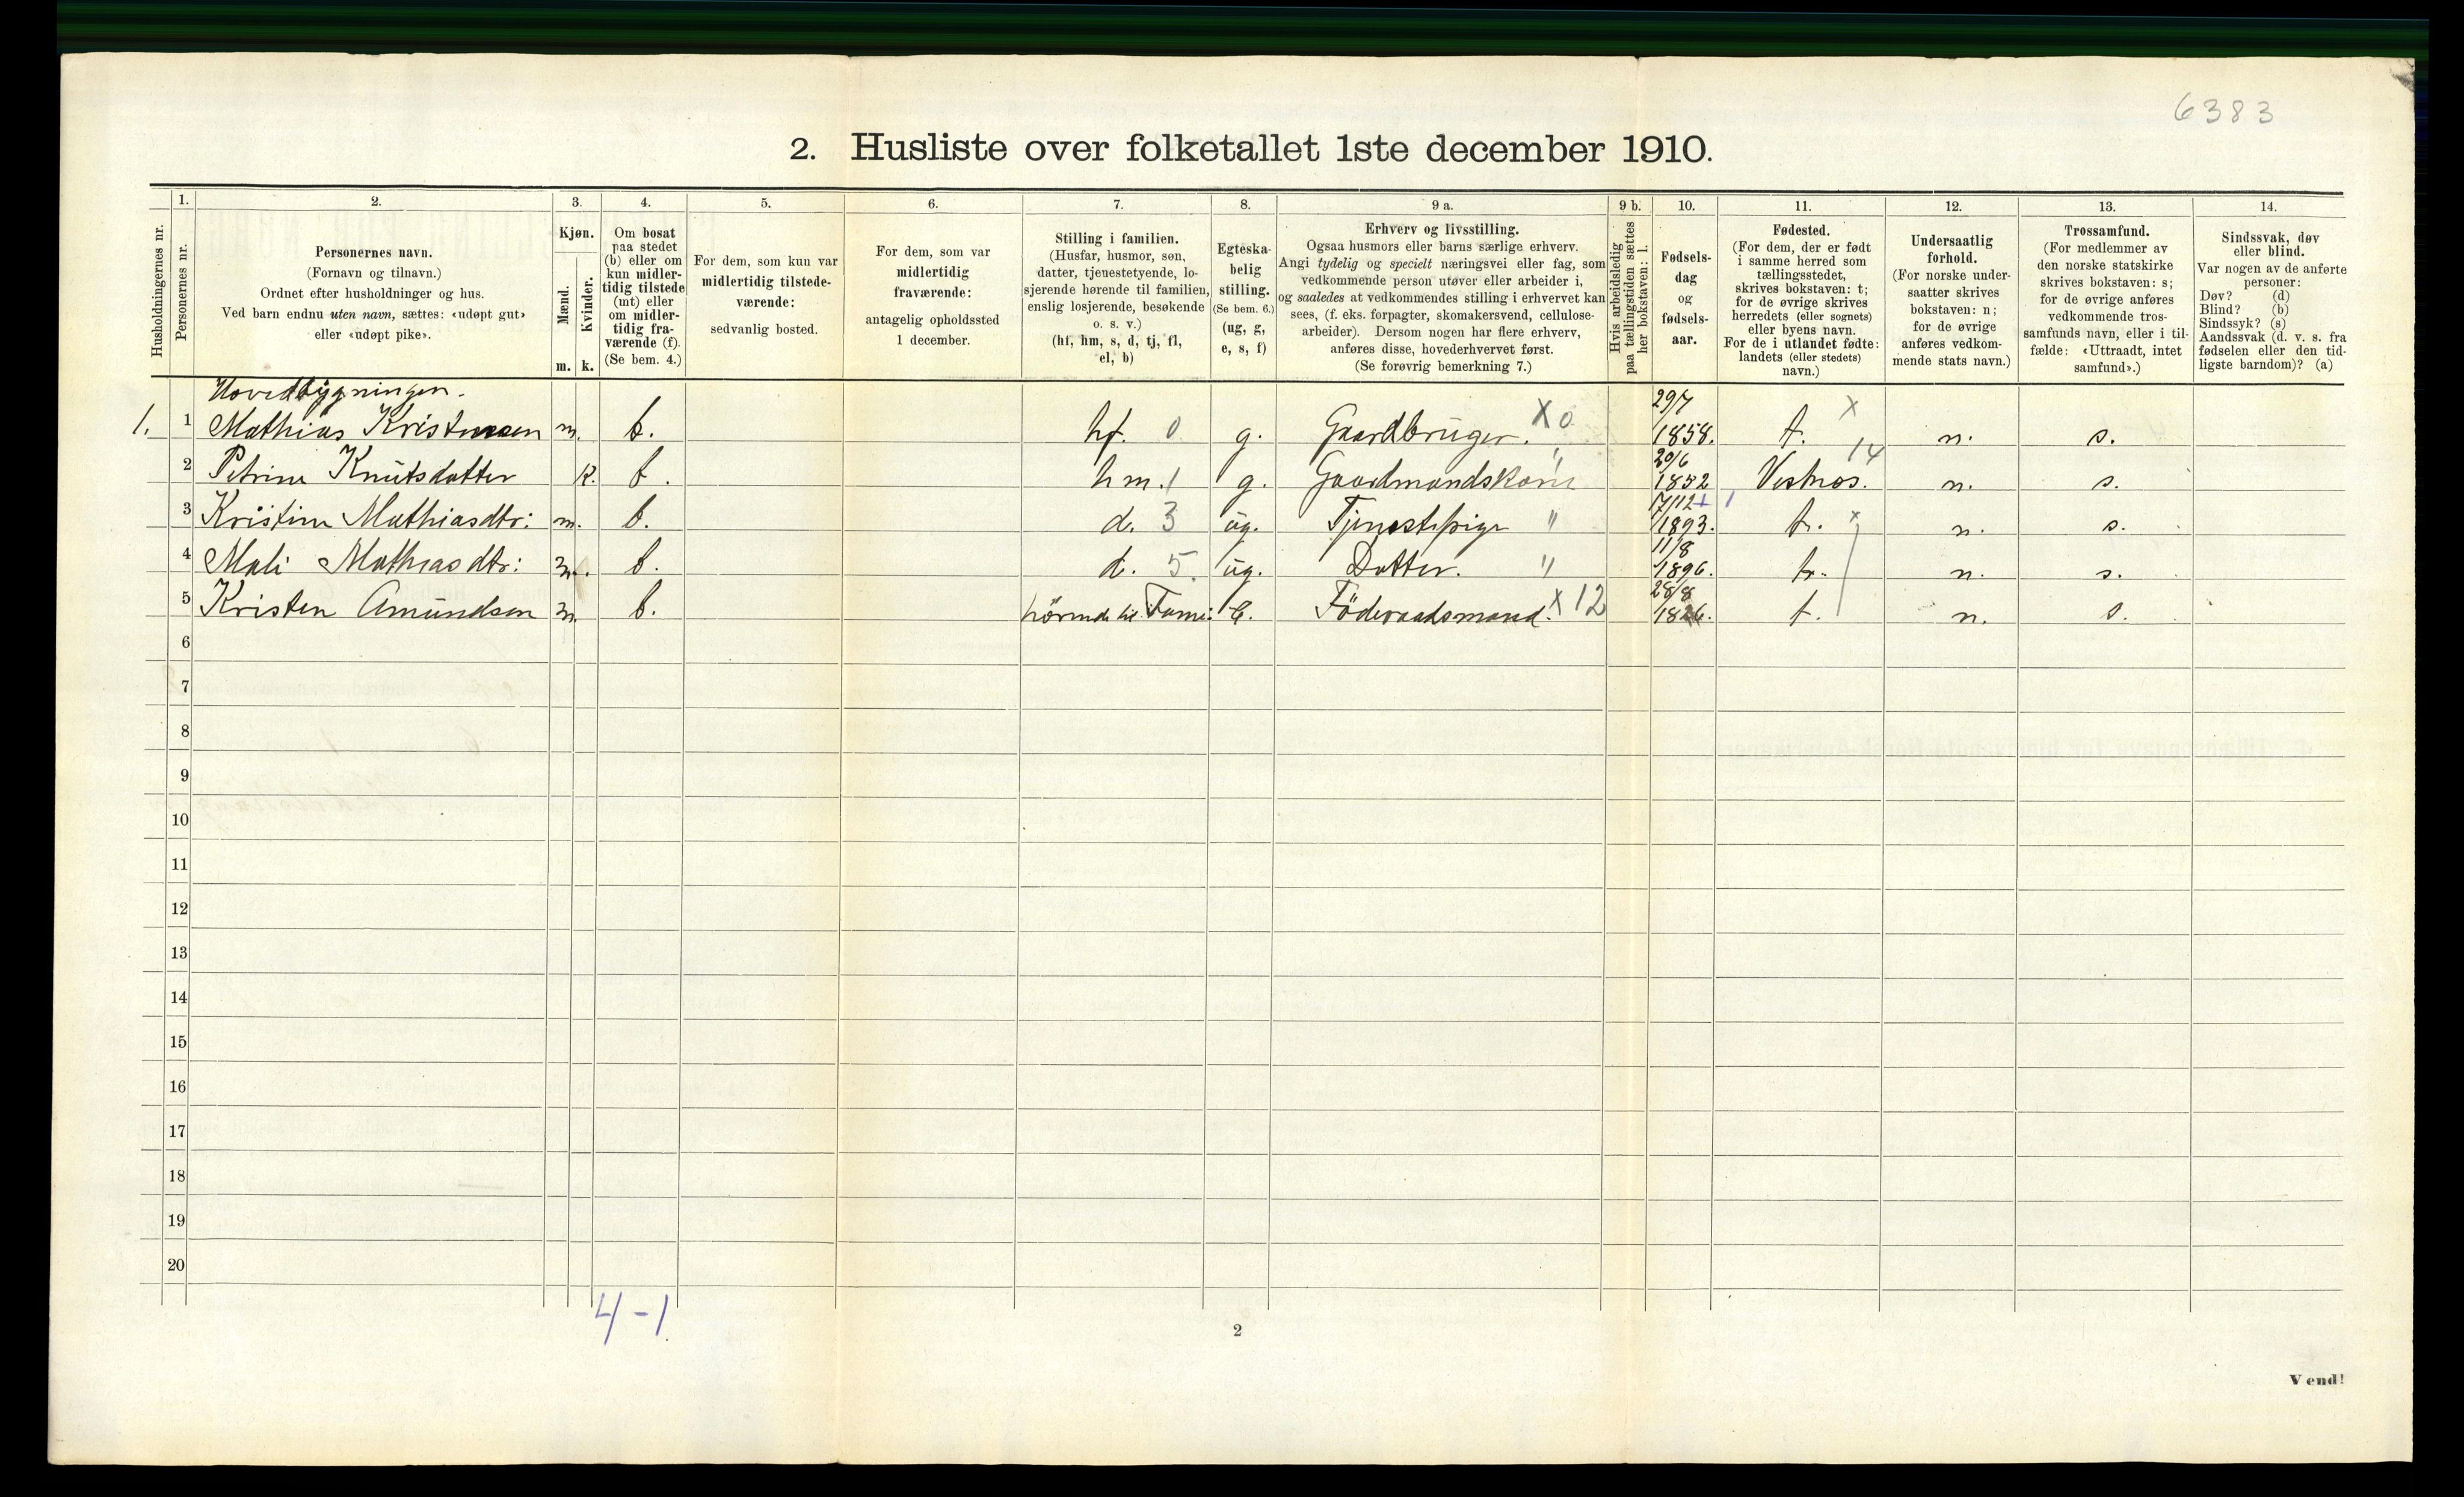 6383
2. Husliste over folketallet 1ste december 1910.
Husholdningernes nr.
1.
Personernes nr.
2.
Personernes navn.
(Fornavn og tilnavn.)
Ordnet efter husholdninger og hus.
Ved barn endnu uten navn, sættes: «udøpt gut»
eller «udøpt pike».
3.
Kjøn.
Mænd.
Kvinder.
m. k.
4.
Om bosat
paa stedet
(b) eller om
kun midler-
tidig tilstede
(mt) eller
om midler-
tidig fra-
værende (f).
(Se bem. 4.)
5.
For dem, som kun var
midlertidig tilstede-
værende:
sedvanlig bosted.
6.
For dem, som var
midlertidig
fraværende:
antagelig opholdssted
1 december.
7.
Stilling i familien.
(Husfar, husmor, søn,
datter, tjenestetyende, lo-
sjerende hørende til familien,
enslig losjerende, besøkende
o. s. v.)
(hf, hm, s, d, tj, fl,
el, b)
8.
Egteska-
belig
stilling.
(Se bem. 6.)
(ug, g,
e, s, f)
9 a.
Erhverv og livsstilling.
Ogsaa husmors eller barns særlige erhverv.
Angi tydelig og specielt næringsvei eller fag, som
vedkommende person utøver eller arbeider i,
og saaledes at vedkommendes stilling i erhvervet kan
sees, (f. eks. forpagter, skomakersvend, cellulose-
arbeider). Dersom nogen har flere erhverv,
anføres disse, hovederhvervet først.
(Se forøvrig bemerkning 7.)
9 b.
Hvis arbeidsledig
paa tællingstiden sættes
her bokstaven: l.
10.
Fødsels-
dag
og
fødsels-
aar.
11.
Fødested.
(For dem, der er født
i samme herred som
tællingsstedet,
skrives bokstaven: t;
for de øvrige skrives
herredets (eller sognets)
eller byens navn.
For de i utlandet fødte:
landets (eller stedets)
navn.)
12.
Undersaatlig
forhold.
(For norske under-
saatter skrives
bokstaven: n;
for de øvrige
anføres vedkom-
mende stats navn.)
13.
Trossamfund.
(For medlemmer av
den norske statskirke
skrives bokstaven: s;
for de øvrige anføres
vedkommende tros-
samfunds navn, eller i til-
fælde: «Uttraadt, intet
samfund».)
14.
Sindssvak, døv
eller blind.
Var nogen av de anførte
personer:
Døv? (d)
Blind? (b)
Sindssyk? (s)
Aandssvak (d. v. s. fra
fødselen eller den tid-
ligste barndom)? (a)
Hovedbygningen.
1. 1 Mathias Kristensen m. b. hf. 0 g. Gaardbruger. X 0 29/7 1858. t. X n. s.
2 Petrine Knutsdatter k. b. hm. 1 g. Gaardmandskone " 20/6 1852 Vestnes. 14 n. s.
3 Kristine Mathiasdtr: m. b. d. 3 ug. Tjenestepige " 17/12 1893. t. x n. s.
4 Mali Mathiasdtr: m. b. d. 5. ug. Datter. " 11/8 1896. t. n. s.
5 Kristen Amundsen m. b. hörende til Fami: E. Föderaadsmand. X 12 28/8 1826. t. n. s.
6
7
8
9
10
11
12
13
14
15
16
17
18
19
20
4-1
2
Vend!